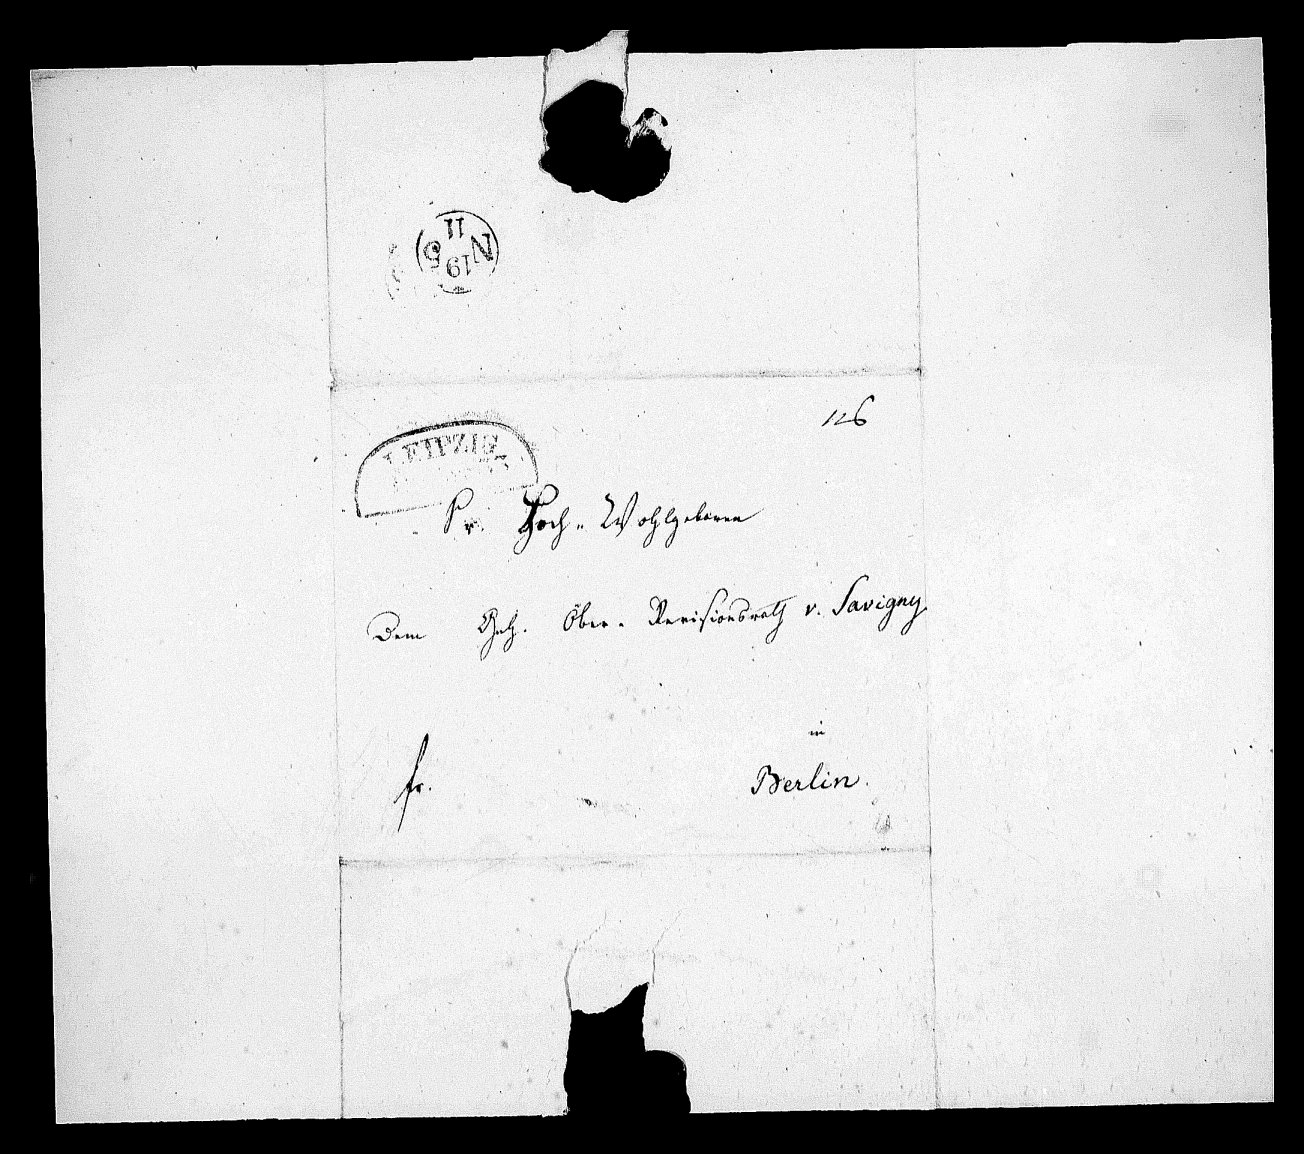 N 5
19
11
126
LEIPZIG
Sr. Hoch-Wohlgeboren
Dem Geh. Ober-Revisionsrath v. Savigny
in
fr. Berlin.